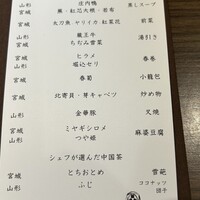 山形 庄内鴨 蒸しスープ
宮城 巣・紅芯大根・若布
宮城 太刀魚・ヤリイカ・紅菜苔 前菜
山形
宮城 蔵王牛 湯引き
山形 ちぢみ雪菜
宮城 ヒラメ 春巻
宮城 堀込セリ
宮城 春菊 小籠包
宮城 北寄貝・芽キャベツ 炒め物
山形 金華豚 叉焼
宮城 ミヤギシロメ 麻婆豆腐
山形 つや姫
シェフが選んだ中国茶
宮城 とちおとめ 雪葩
山形 ふじ ココナッツ
団子